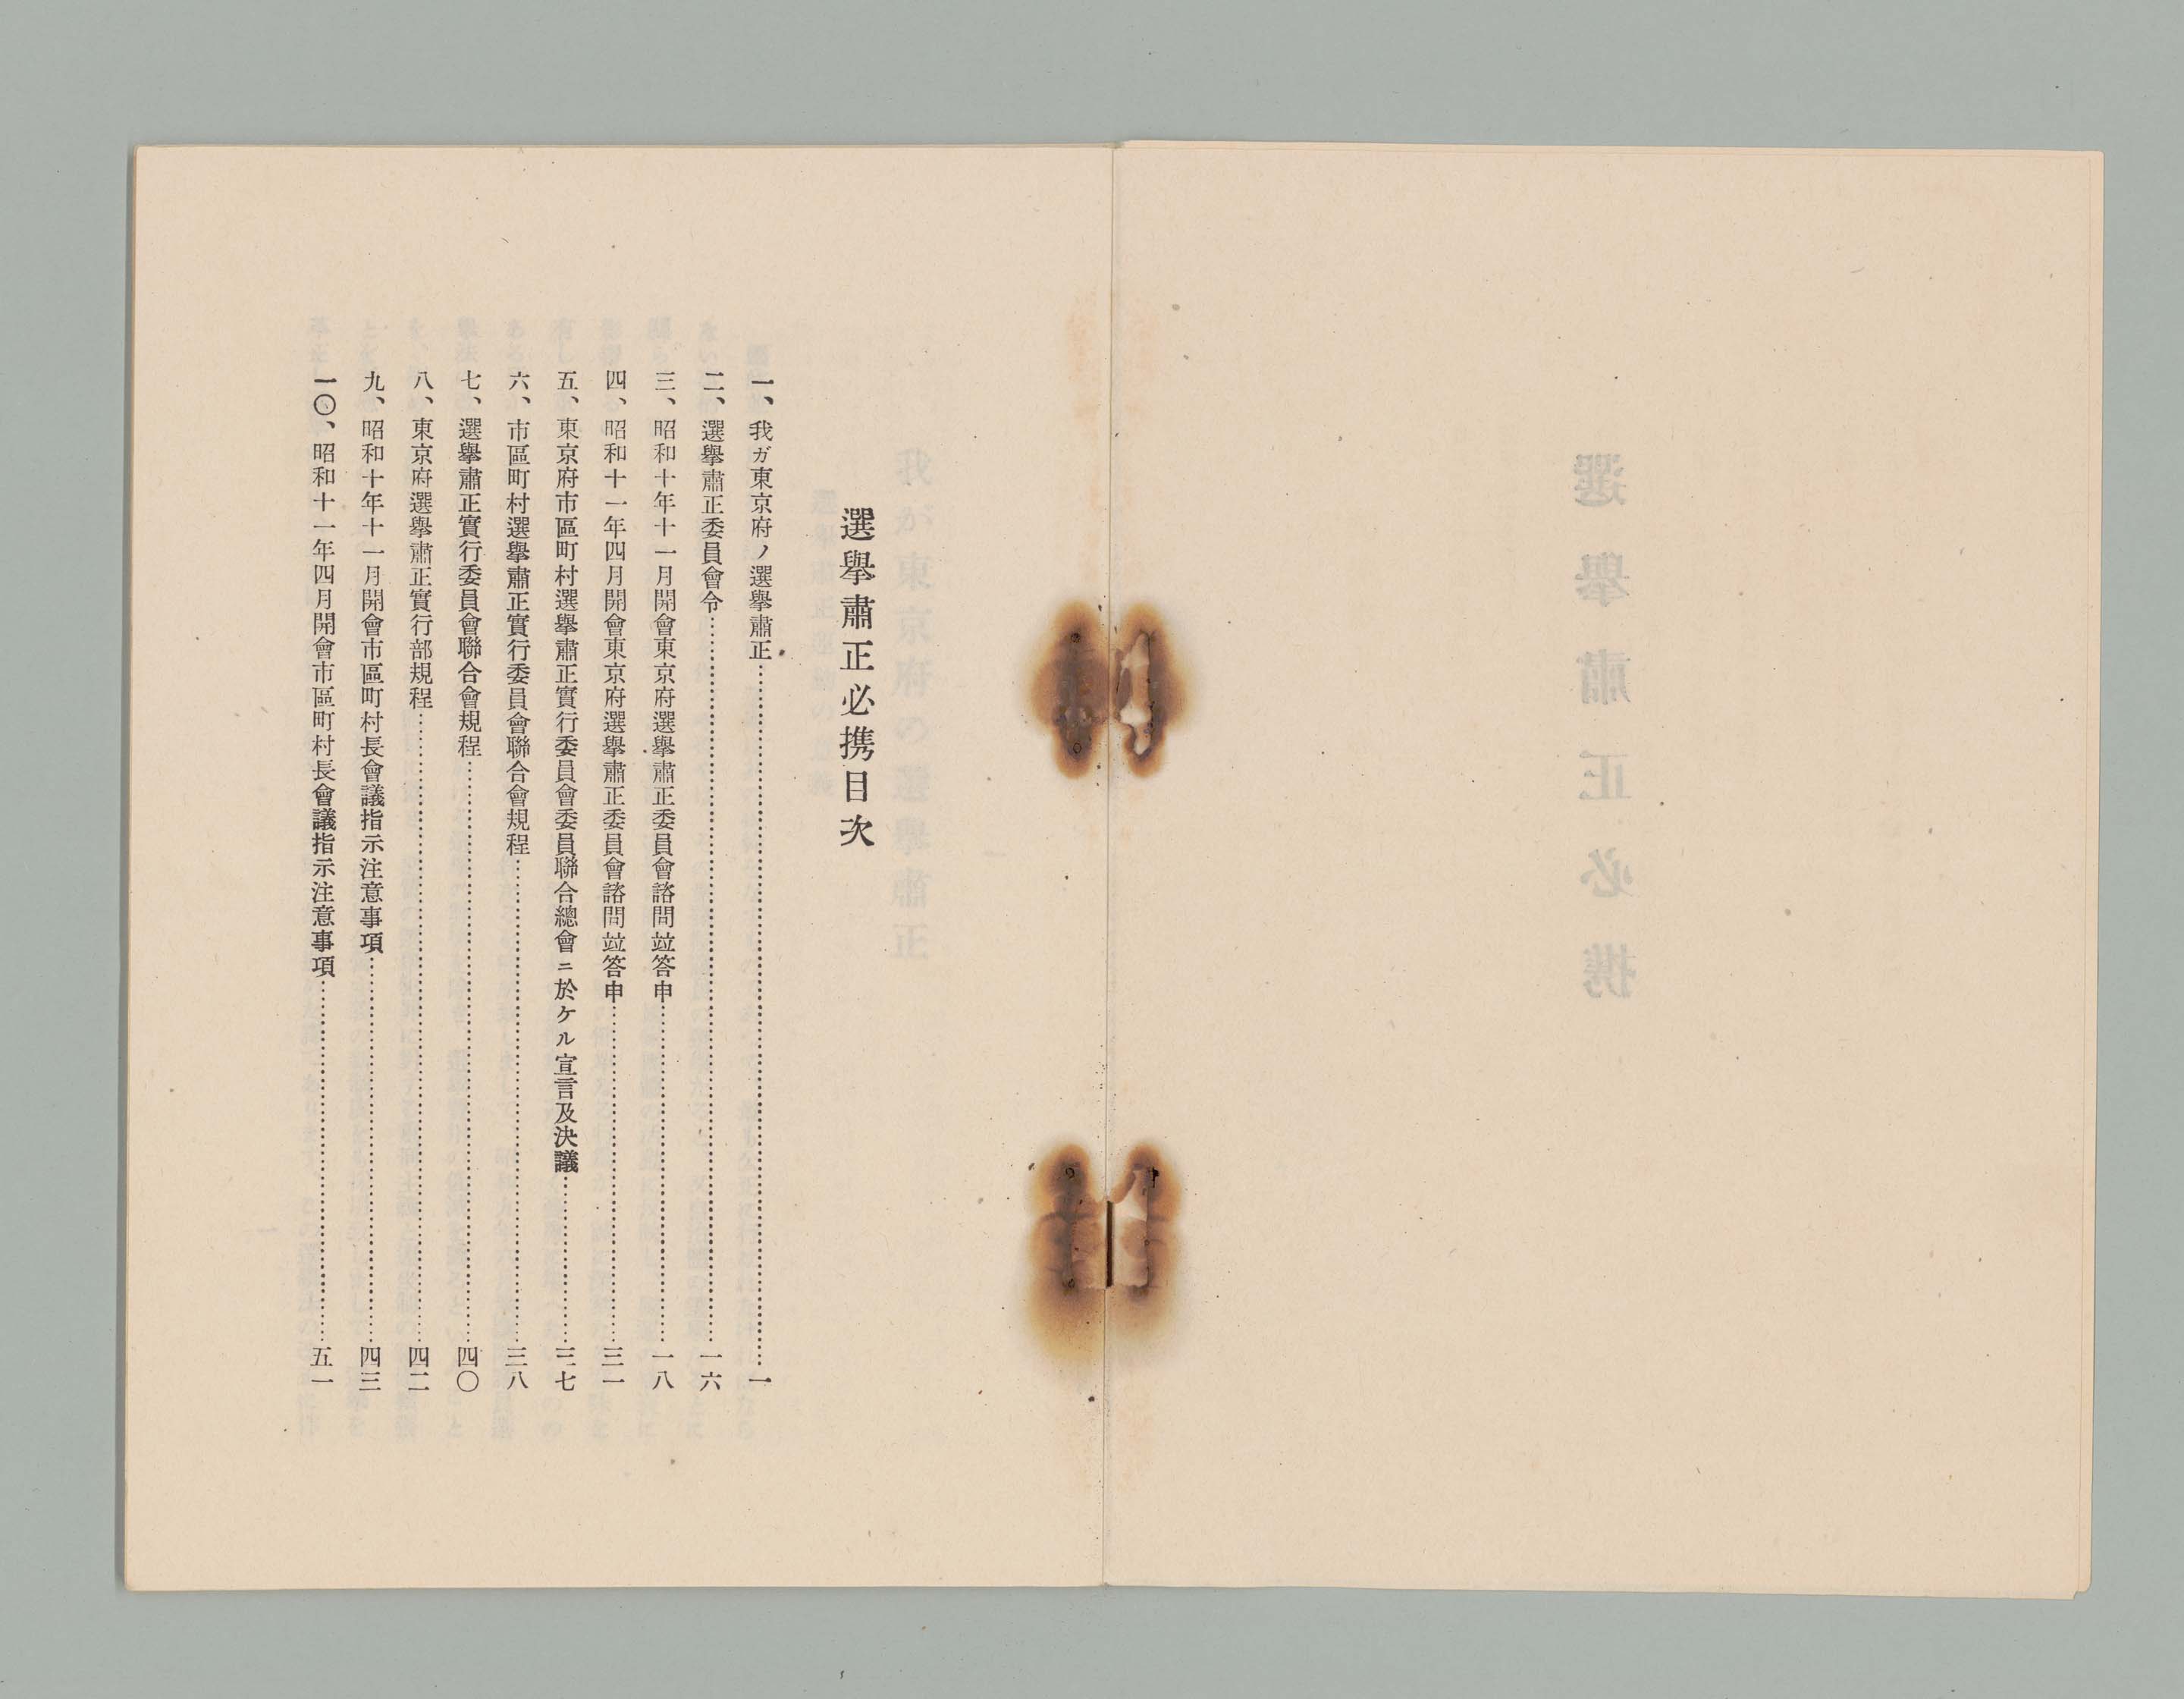 選擧肅正必携
選擧肅正必携目次
一、我ガ東京府ノ選擧肅正……一
二、選擧肅正委員會令……一六
三、昭和十年十一月開會東京府選擧肅正委員會諮問竝答申……一八
四、昭和十一年四月開會東京府選擧肅正委員會諮問竝答申……三一
五、東京府市區町村選擧肅正實行委員會委員聯合總會ニ於ケル宣言及決議……三七
六、市區町村選擧肅正實行委員會聯合會規程……三八
七、選擧肅正實行委員會聯合會規程……四〇
八、東京府選擧肅正實行部規程……四二
九、昭和十年十一月開會市區町村長會議指示注意事項……四三
一〇、昭和十一年四月開會市區町村長會議指示注意事項……五一